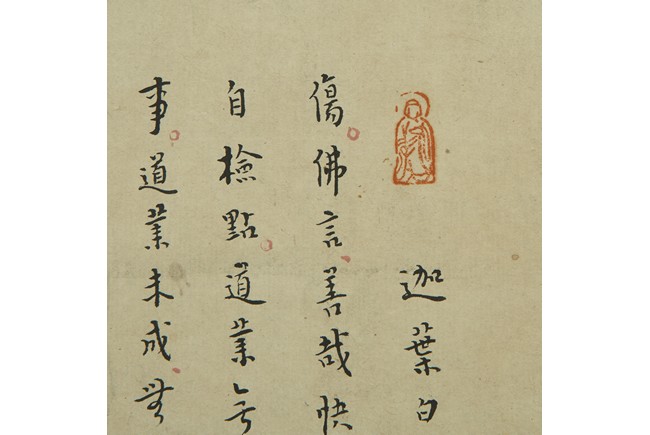 迦葉白
傷佛言善哉快
自檢點道業
事道業未成無